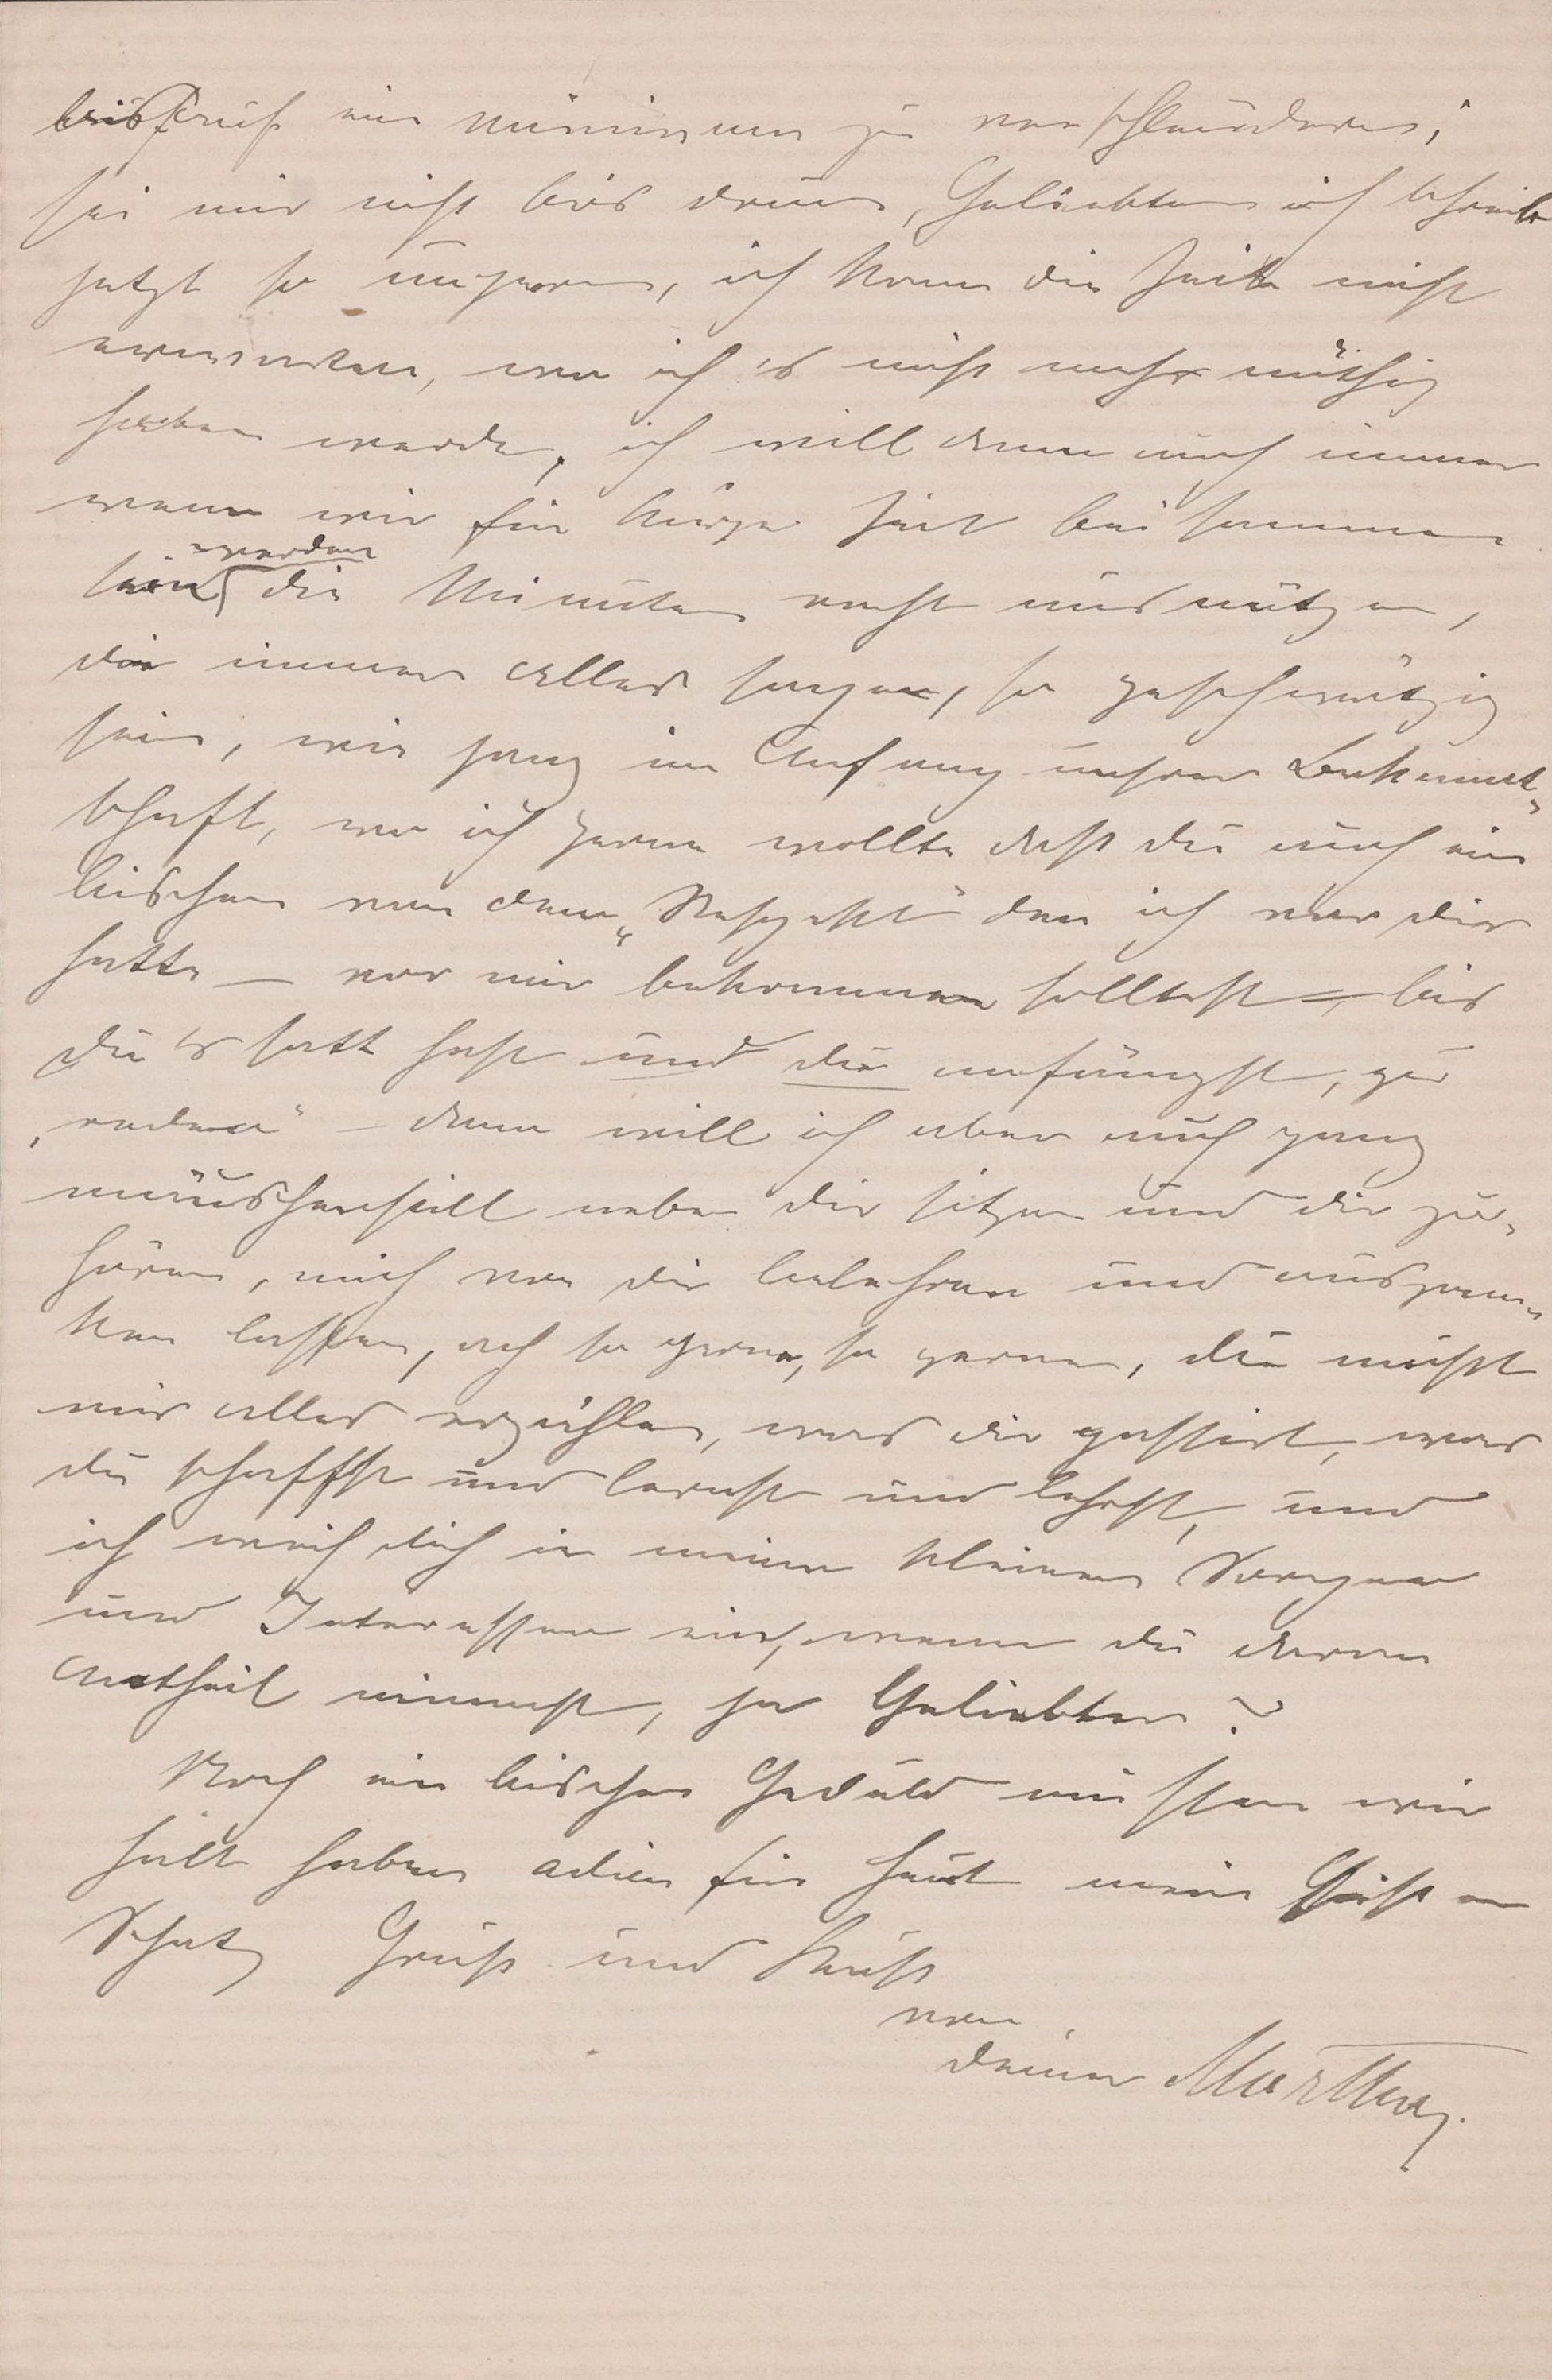 auf ein minimum zu verschleudern;
sei mir nicht bös drum, Geliebter ich schreib
jetzt so ungern, ich kann die Zeit nicht
erwarten, wo ich es nicht mehr nöthig
haben werde, ich will dann auch immer
wenn wir für kurze Zeit beisammen
sein werden die Minuten recht ausnützen,
dir immer alles sagen, so geschwätzig
sein, wie ganz im Anfang unsrer Bekannt-
schaft, wo ich gerne wollte daß du auch ein
bischen von dem „Respekt" den ich vor dir
hatte – vor mir bekommen solltest – bis
du es satt hast und du anfängst, zu
„reden" – dann will ich aber auch ganz
mäuschenstill neben dir sitzen und dir zu-
hören, mich von dir belehren und auszan-
ken lassen, ach so gerne, so gerne, du mußt
mir alles erzählen, was dir passirt, was
du schaffst und lernst und lehrst, und
ich weih dich in meine kleinen Sorgen
und Interessen ein, wenn du daran
Antheil nimmst, ja Geliebter?
Noch ein bischen Geduld müssen wir
halt haben adieu für heut mein
Schatz Gruß und Kuß
von
deiner Martha.